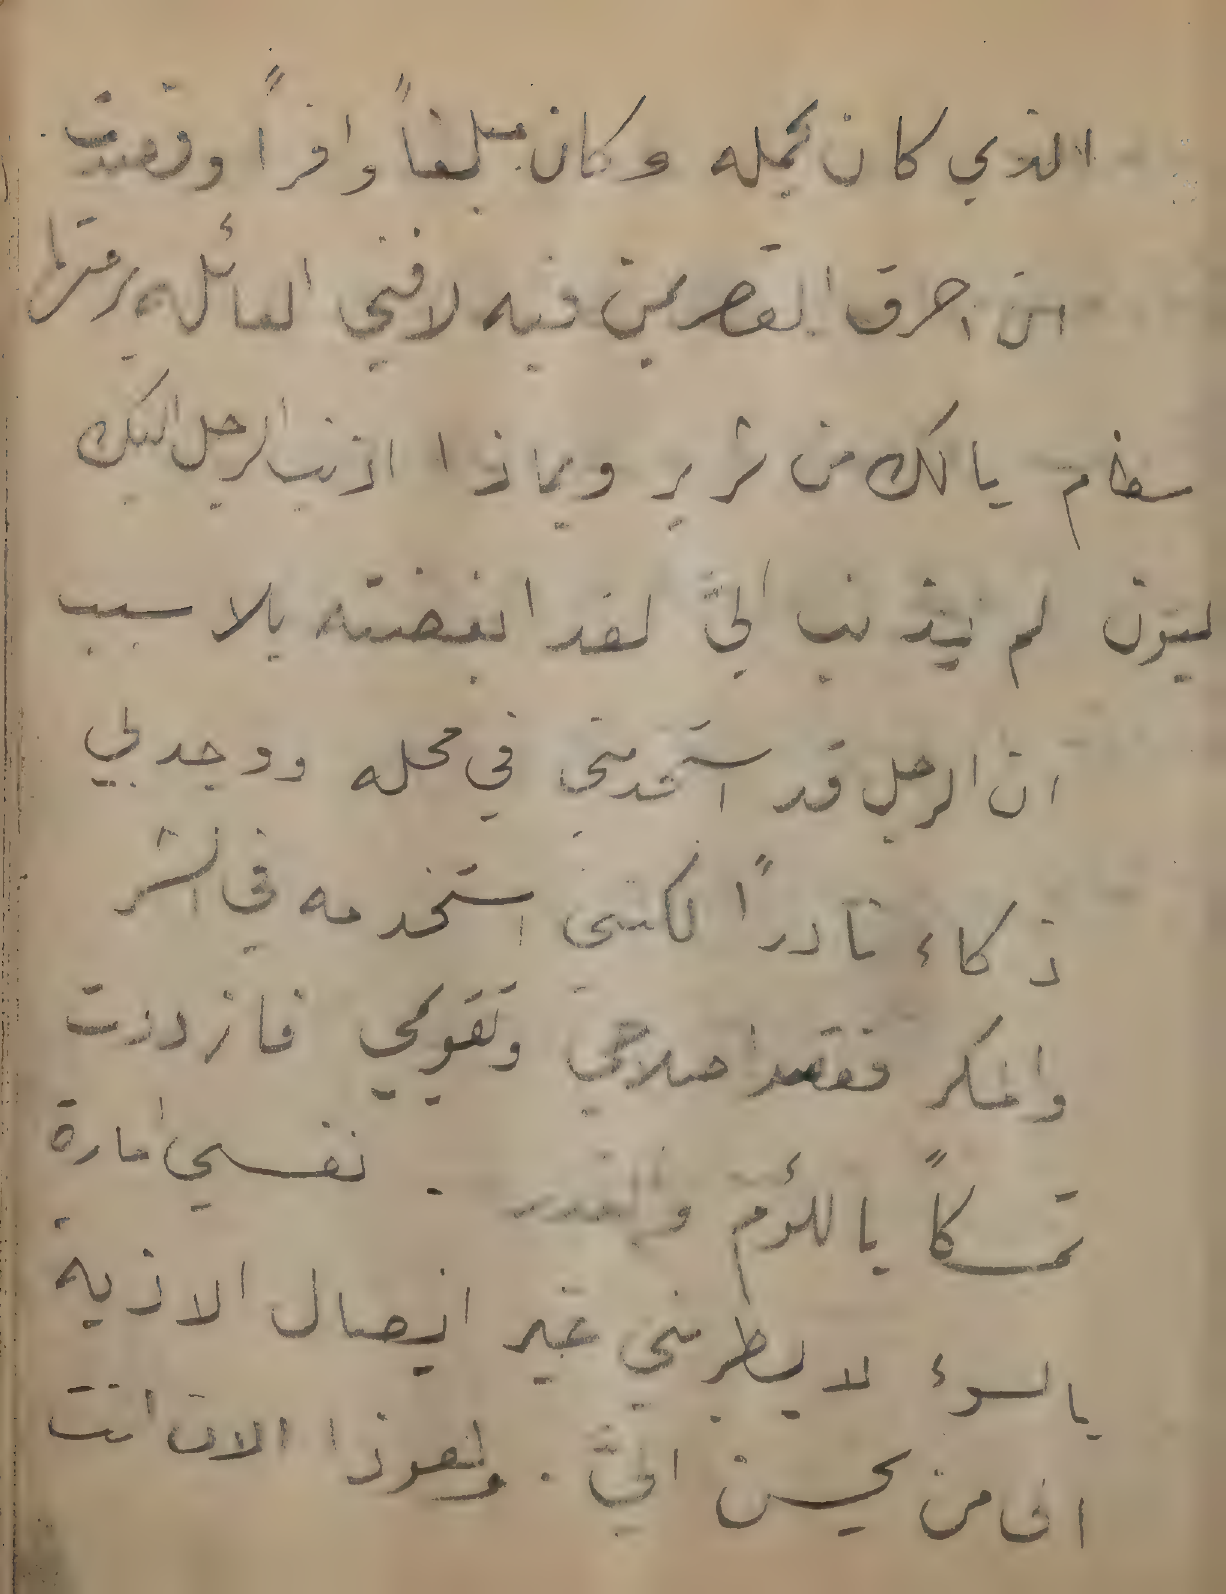 الذي كان يحمله وكان مبلغاً وافراً وقصدت
ان احرق القصر بمن فيه لافني العائله برمتها
سقام يالك من شرير وبماذا اذنب الرجل اليك
ليون لم يذنب اليَّ لقد ابغضته بلا سبب
ان الرجل قد استخدمني في محله ووجد بي
ذكاء نادراً لكنني استخدمه في الشر
والمكر فقصد اصلاحي وتقويمي فازددت
تمسكاً باللؤم والغدر . نفسي امارة
بالسوء لا يطربني غير ايصال الاذية
الى من يحسن اليَّ . وهوذا الان انت